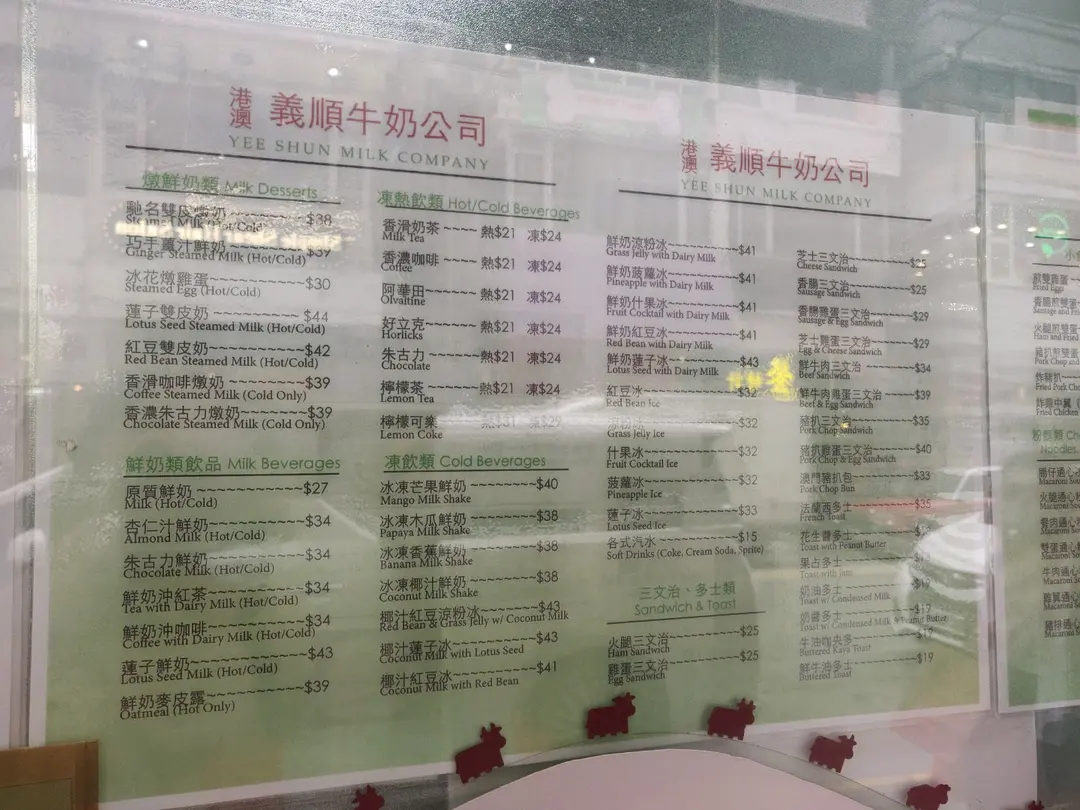 港澳 義順牛奶公司
YEE SHUN MILK COMPANY
燉鮮奶類 Milk Desserts
馳名雙皮燉奶 ~~~~~~~~ $38
Steamed Milk (Hot/Cold)
巧手薑汁鮮奶 ~~~~~~~~ $39
Ginger Steamed Milk (Hot/Cold)
冰花燉雞蛋 ~~~~~~~~ $30
Steamed Egg (Hot/Cold)
蓮子雙皮奶 ~~~~~~~~ $44
Lotus Seed Steamed Milk (Hot/Cold)
紅豆雙皮奶 ~~~~~~~~ $42
Red Bean Steamed Milk (Hot/Cold)
香滑咖啡燉奶 ~~~~~~~~ $39
Coffee Steamed Milk (Cold Only)
香濃朱古力燉奶 ~~~~~~~~ $39
Chocolate Steamed Milk (Cold Only)
鮮奶類飲品 Milk Beverages
原質鮮奶 ~~~~~~~~ $27
Milk (Hot/Cold)
杏仁汁鮮奶 ~~~~~~~~ $34
Almond Milk (Hot/Cold)
朱古力鮮奶 ~~~~~~~~ $34
Chocolate Milk (Hot/Cold)
鮮奶沖紅茶 ~~~~~~~~ $34
Tea with Dairy Milk (Hot/Cold)
鮮奶沖咖啡 ~~~~~~~~ $34
Coffee with Dairy Milk (Hot/Cold)
蓮子鮮奶 ~~~~~~~~ $43
Lotus Seed Milk (Hot/Cold)
鮮奶麥皮露 ~~~~~~~~ $39
Oatmeal (Hot Only)
凍熱飲類 Hot/Cold Beverages
香滑奶茶 ~~~~ 熱$21 凍$24
Milk Tea
香濃咖啡 ~~~~ 熱$21 凍$24
Coffee
阿華田 ~~~~ 熱$21 凍$24
Ovaltine
好立克 ~~~~ 熱$21 凍$24
Horlicks
朱古力 ~~~~ 熱$21 凍$24
Chocolate
檸檬茶 ~~~~ 熱$21 凍$24
Lemon Tea
檸檬可樂 ~~~~ 熱$31 凍$29
Lemon Coke
凍飲類 Cold Beverages
冰凍芒果鮮奶 ~~~~~~~~ $40
Mango Milk Shake
冰凍木瓜鮮奶 ~~~~~~~~ $38
Papaya Milk Shake
冰凍香蕉鮮奶 ~~~~~~~~ $38
Banana Milk Shake
冰凍椰汁鮮奶 ~~~~~~~~ $38
Coconut Milk Shake
椰汁紅豆涼粉冰 ~~~~~~~~ $43
Red Bean & Grass Jelly w/ Coconut Milk
椰汁蓮子冰 ~~~~~~~~ $43
Coconut Milk with Lotus Seed
椰汁紅豆冰 ~~~~~~~~ $41
Coconut Milk with Red Bean
港澳 義順牛奶公司
YEE SHUN MILK COMPANY
鮮奶涼粉冰 ~~~~~~~~ $41
Grass Jelly with Dairy Milk
鮮奶菠蘿冰 ~~~~~~~~ $41
Pineapple with Dairy Milk
鮮奶什果冰 ~~~~~~~~ $41
Fruit Cocktail with Dairy Milk
鮮奶紅豆冰 ~~~~~~~~ $41
Red Bean with Dairy Milk
鮮奶蓮子冰 ~~~~~~~~ $43
Lotus Seed with Dairy Milk
紅豆冰 ~~~~~~~~ $32
Red Bean Ice
涼粉冰 ~~~~~~~~ $32
Grass Jelly Ice
什果冰 ~~~~~~~~ $32
Fruit Cocktail Ice
菠蘿冰 ~~~~~~~~ $32
Pineapple Ice
蓮子冰 ~~~~~~~~ $33
Lotus Seed Ice
各式汽水 ~~~~~~~~ $15
Soft Drinks (Coke, Cream Soda, Sprite)
三文治、多士類
Sandwich & Toast
火腿三文治 ~~~~~~~~ $25
Ham Sandwich
雞蛋三文治 ~~~~~~~~ $25
Egg Sandwich
芝士三文治 ~~~~~~~~ $25
Cheese Sandwich
香腸三文治 ~~~~~~~~ $25
Sausage Sandwich
香腸雞蛋三文治 ~~~~~~~~ $29
Sausage & Egg Sandwich
芝士雞蛋三文治 ~~~~~~~~ $29
Egg & Cheese Sandwich
鮮牛肉三文治 ~~~~~~~~ $34
Beef Sandwich
鮮牛肉雞蛋三文治 ~~~~~~~~ $39
Beef & Egg Sandwich
豬扒三文治 ~~~~~~~~ $35
Pork Chop Sandwich
豬扒雞蛋三文治 ~~~~~~~~ $40
Pork Chop & Egg Sandwich
澳門豬扒包 ~~~~~~~~ $33
Pork Chop Bun
法蘭西多士 ~~~~~~~~ $35
French Toast
花生醬多士
Toast with Peanut Butter
果占多士
Toast with Jam
奶油多士 ~~~~~~~~ $19
Toast w/ Condensed Milk
奶醬多士 ~~~~~~~~ $19
Toast w/ Condensed Milk & Peanut Butter
牛油咖央多 ~~~~~~~~ $19
Buttered Kaya Toast
鮮牛油多士 ~~~~~~~~ $19
Buttered Toast
煎雙雞蛋
Fried Eggs
香腸煎雙蛋
Sausage and Fried
火腿煎雙蛋
Ham and Fried
豬扒煎雙蛋
Pork Chop and
炸豬扒
Fried Pork Cho
炸雞中翼
Fried Chicken
粉麵類
Noodles
Macaroni
火腿通心
餐肉通心
雙蛋通心
牛肉通心
豬排通心